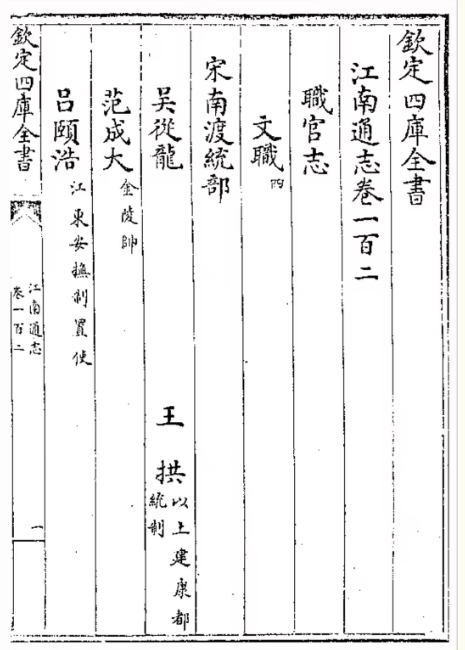 欽定四庫全書
江南通志卷一百二
職官志
文職四
宋南渡統部
吳從龍
王拱以上建康都統制
范成大金陵帥
呂頤浩江東安撫制置使
欽定四庫全書
江南通志
卷一百二
一